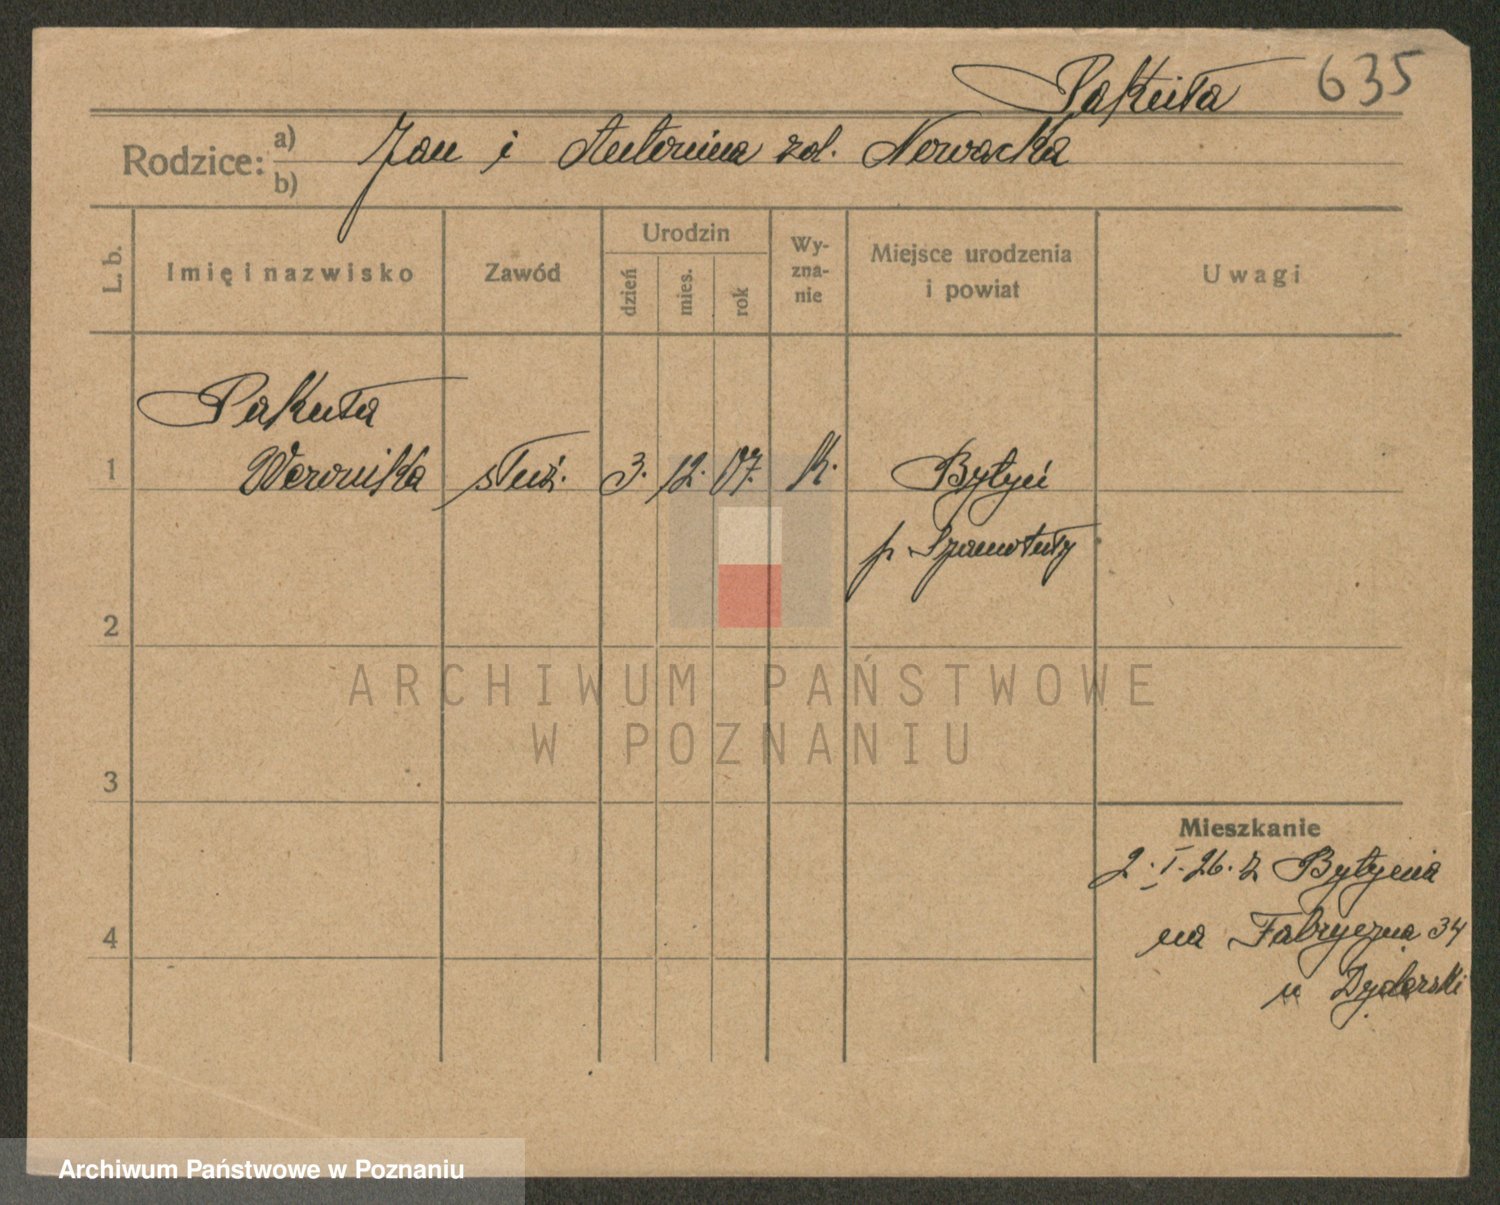 Pakuła 635
Rodzice: a) b) Jan i Antonina zd. Nowacka
L. b. Imię i nazwisko Zawód Urodzin dzień mies. rok Wy-zna-nie Miejsce urodzenia i powiat Uwagi
Pakuła
1 Weronika służ. 3. 12. 07. k. Bytyń
p. Szamotuły
2
ARCHIWUM PAŃSTWOWE
W POZNANIU
3
Mieszkanie
2. I. 26. z Bytynia
4 na Fabryczna 34
u Dyderski
Archiwum Państwowe w Poznaniu